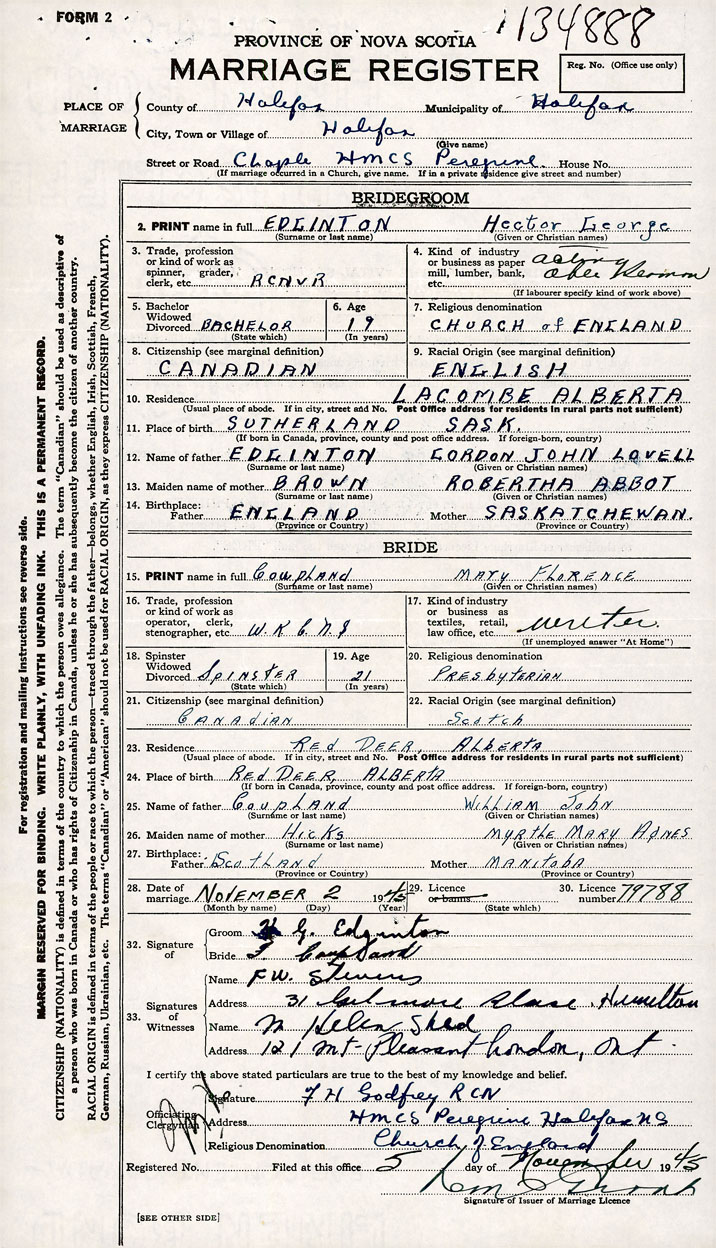 FORM 2
134888
PROVINCE OF NOVA SCOTIA
MARRIAGE REGISTER
Reg. No. (Office use only)
PLACE OF MARRIAGE
County of Halifax Municipality of Halifax
City, Town or Village of Halifax
(Give name)
Street or Road Chaple HMCS Peregrine. House No.
(If marriage occurred in a Church, give name. If in a private residence give street and number)
BRIDEGROOM
2. PRINT name in full EDGINTON Hector George
(Surname or last name) (Given or Christian names)
3. Trade, profession or kind of work as spinner, grader, clerk, etc. RCNVR
4. Kind of industry or business as paper mill, lumber, bank, etc. acting able
(If labourer specify kind of work above)
5. Bachelor Widowed Divorced BACHELOR
(State which)
6. Age 19
(In years)
7. Religious denomination
CHURCH of ENGLAND
8. Citizenship (see marginal definition)
CANADIAN
9. Racial Origin (see marginal definition)
ENGLISH
10. Residence LACOMBE ALBERTA
(Usual place of abode. If in city, street and No. Post Office address for residents in rural parts not sufficient)
11. Place of birth SUTHERLAND SASK.
(If born in Canada, province, county and post office address. If foreign-born, country)
12. Name of father EDGINTON GORDON JOHN LOVELL
(Surname or last name) (Given or Christian names)
13. Maiden name of mother BROWN ROBERTHA ABBOT
(Surname or last name) (Given or Christian names)
14. Birthplace: Father ENGLAND Mother SASKATCHEWAN.
(Province or Country) (Province or Country)
BRIDE
15. PRINT name in full Coupland Mary Florence
(Surname or last name) (Given or Christian names)
16. Trade, profession or kind of work as operator, clerk, stenographer, etc.
17. Kind of industry or business as textiles, retail, law office, etc. writer.
(If unemployed answer "At Home")
18. Spinster Widowed Divorced Spinster
(State which)
19. Age 21
(In years)
20. Religious denomination
Presbyterian
21. Citizenship (see marginal definition)
Canadian
22. Racial Origin (see marginal definition)
Scotch
23. Residence Red Deer, Alberta
(Usual place of abode. If in city, street and No. Post Office address for residents in rural parts not sufficient)
24. Place of birth Red Deer, Alberta
(If born in Canada, province, county and post office address. If foreign-born, country)
25. Name of father Coupland William John
(Surname or last name) (Given or Christian names)
26. Maiden name of mother Hicks Myrtle Mary Agnes
(Surname or last name) (Given or Christian names)
27. Birthplace: Father Scotland Mother Manitoba
(Province or Country) (Province or Country)
28. Date of marriage November 2 1945
(Month by name) (Day) (Year)
29. Licence or banns
(State which)
30. Licence number 79788
32. Signature of
Groom H G. Edginton
Bride Coupland
33. Signatures of Witnesses
Name F.W. Stevens
Address 31 Hamilton
Name M Helen Shed
Address 121 Mt-Pleasant London, Ont.
I certify the above stated particulars are true to the best of my knowledge and belief.
Officiating Clergyman
Signature F H Godfrey RCN
Address HMCS Peregrine Halifax NS
Religious Denomination Church of England
Registered No. Filed at this office 5 day of November 1945
Signature of Issuer of Marriage Licence
[SEE OTHER SIDE]
For registration and mailing instructions see reverse side.
MARGIN RESERVED FOR BINDING. WRITE PLAINLY, WITH UNFADING INK. THIS IS A PERMANENT RECORD.
CITIZENSHIP (NATIONALITY) is defined in terms of the country to which the person owes allegiance. The term "Canadian" should be used as descriptive of
a person who was born in Canada or who has rights of Citizenship in Canada, unless he or she has subsequently become the citizen of another country.
RACIAL ORIGIN is defined in terms of the people or race to which the person—traced through the father—belongs, whether English, Irish, Scottish, French,
German, Russian, Ukrainian, etc. The terms "Canadian" or "American" should not be used for RACIAL ORIGIN, as they express CITIZENSHIP (NATIONALITY).